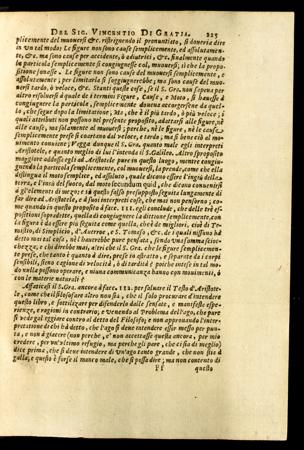 DEL SIG. VINCENTIO DI GRATIA. 225
plicemente del muouersi &c. ristringendo il pronuntiato, si doueria dire
in vn tal modo: Le figure non sono cause semplicemente, ed assolutamen-
te, &c. ma sono cause per accidente, ò adiutrici, &c. finalmente quando
la particola semplicemente si congiugnesse col, muouersi; il che la propo-
sitione sonasse. Le figure non sono cause del muouersi semplicemente, e
assolutamente; per limitarla si doueria soggiugnere, ma sono cause del muo-
uersi tardo, ò veloce, &c. Stanti queste cose, se il S. Gra. non sapeua per
altro risoluersi à quale de i termini Figure, Cause, e Moto, si hauesse à
congiugnere la particola, semplicemente doueua accorgersene da quel-
lo, che segue dopò la limitatione, 
quali attributi non possono nel presente proposito, adattarsi alle figure, nè
alle cause, ma solamente al muouersi; perche, nè le figure, nè le cause
semplicemente prese si contano del veloce, e tardo, ma sì bene ciò al moui-
mento conuiene; Vegga dunque il S. Gra. quanto male egli interpreti
Aristotele, e quanto meglio di lui l'intenda il S. Galileo. Altro sproposito
maggiore addossa egli ad Aristotele pure in questo luogo, mentre congiu-
gnendo la particola semplicemente, col muouersi, la prende, come che ella
distingua il moto semplice, ed assoluto, quale dicono essere l'ingiù della
terra, e l'insù del fuoco, dal moto secundum quid, che dicono conuenirsi
à gl'elementi di mezo; e in questo falso presupposto seguita lungamente di
far dire ad Aristotele, e a' suoi interpreti cose, che mai non pensorno; co-
me quando in questo proposito à face. 111. conclude, che delle tre es-
positioni sopradette, quella di congiugnere la dittione semplicemente, con
la figura è da essere più stimata come quella, che è de migliori, cioè di Te-
mistio, di Simplicio, d'Auerroe, e S. Tomaso, &c. de i quali nissuno hà
detto mai tal cosa, nè l'hauerebbe pure pensata, 
chezza, e chi direbbe mai, altri che il S. Gra. che le figure semplicemen-
te prese, che tanto è quanto à dire, prese in astratto, e separate da i corpi
sensibili, sieno cagione di velocità, ò di tardità? poiche intese in tal mo-
do nulla possono operare, e niuna communicanza hanno con mouimenti, ò
con le materie naturali?
Affaticasi il S. Gra. ancora à face. 112. per saluare il Testo d'Aristote-
le, come che il filosofare altro non sia, che al solo procurare d'intendere
questo libro, e sottilizar per difenderlo dalle sensate, e manifeste espe-
rienze, e ragioni in contrario; e venendo al Problema dell'ago, che pure
si vede galleggiare contro al detto del Filosofo; e non approuando l'inter-
pretatione di chi hà detto, che l'ago si deue intendere esser messo per pun-
ta, e non à giacere (non perche, e' non accettasse questa ancora, per mio
credere, per vn'vltimo refugio, ma perche gli pare, che ci sia di meglio)
dice prima, che si deue intendere di vn'ago tanto grande, che non stia à
galla, e questo è forse il manco male, che si possa dire; ma non contento di
Ff questo